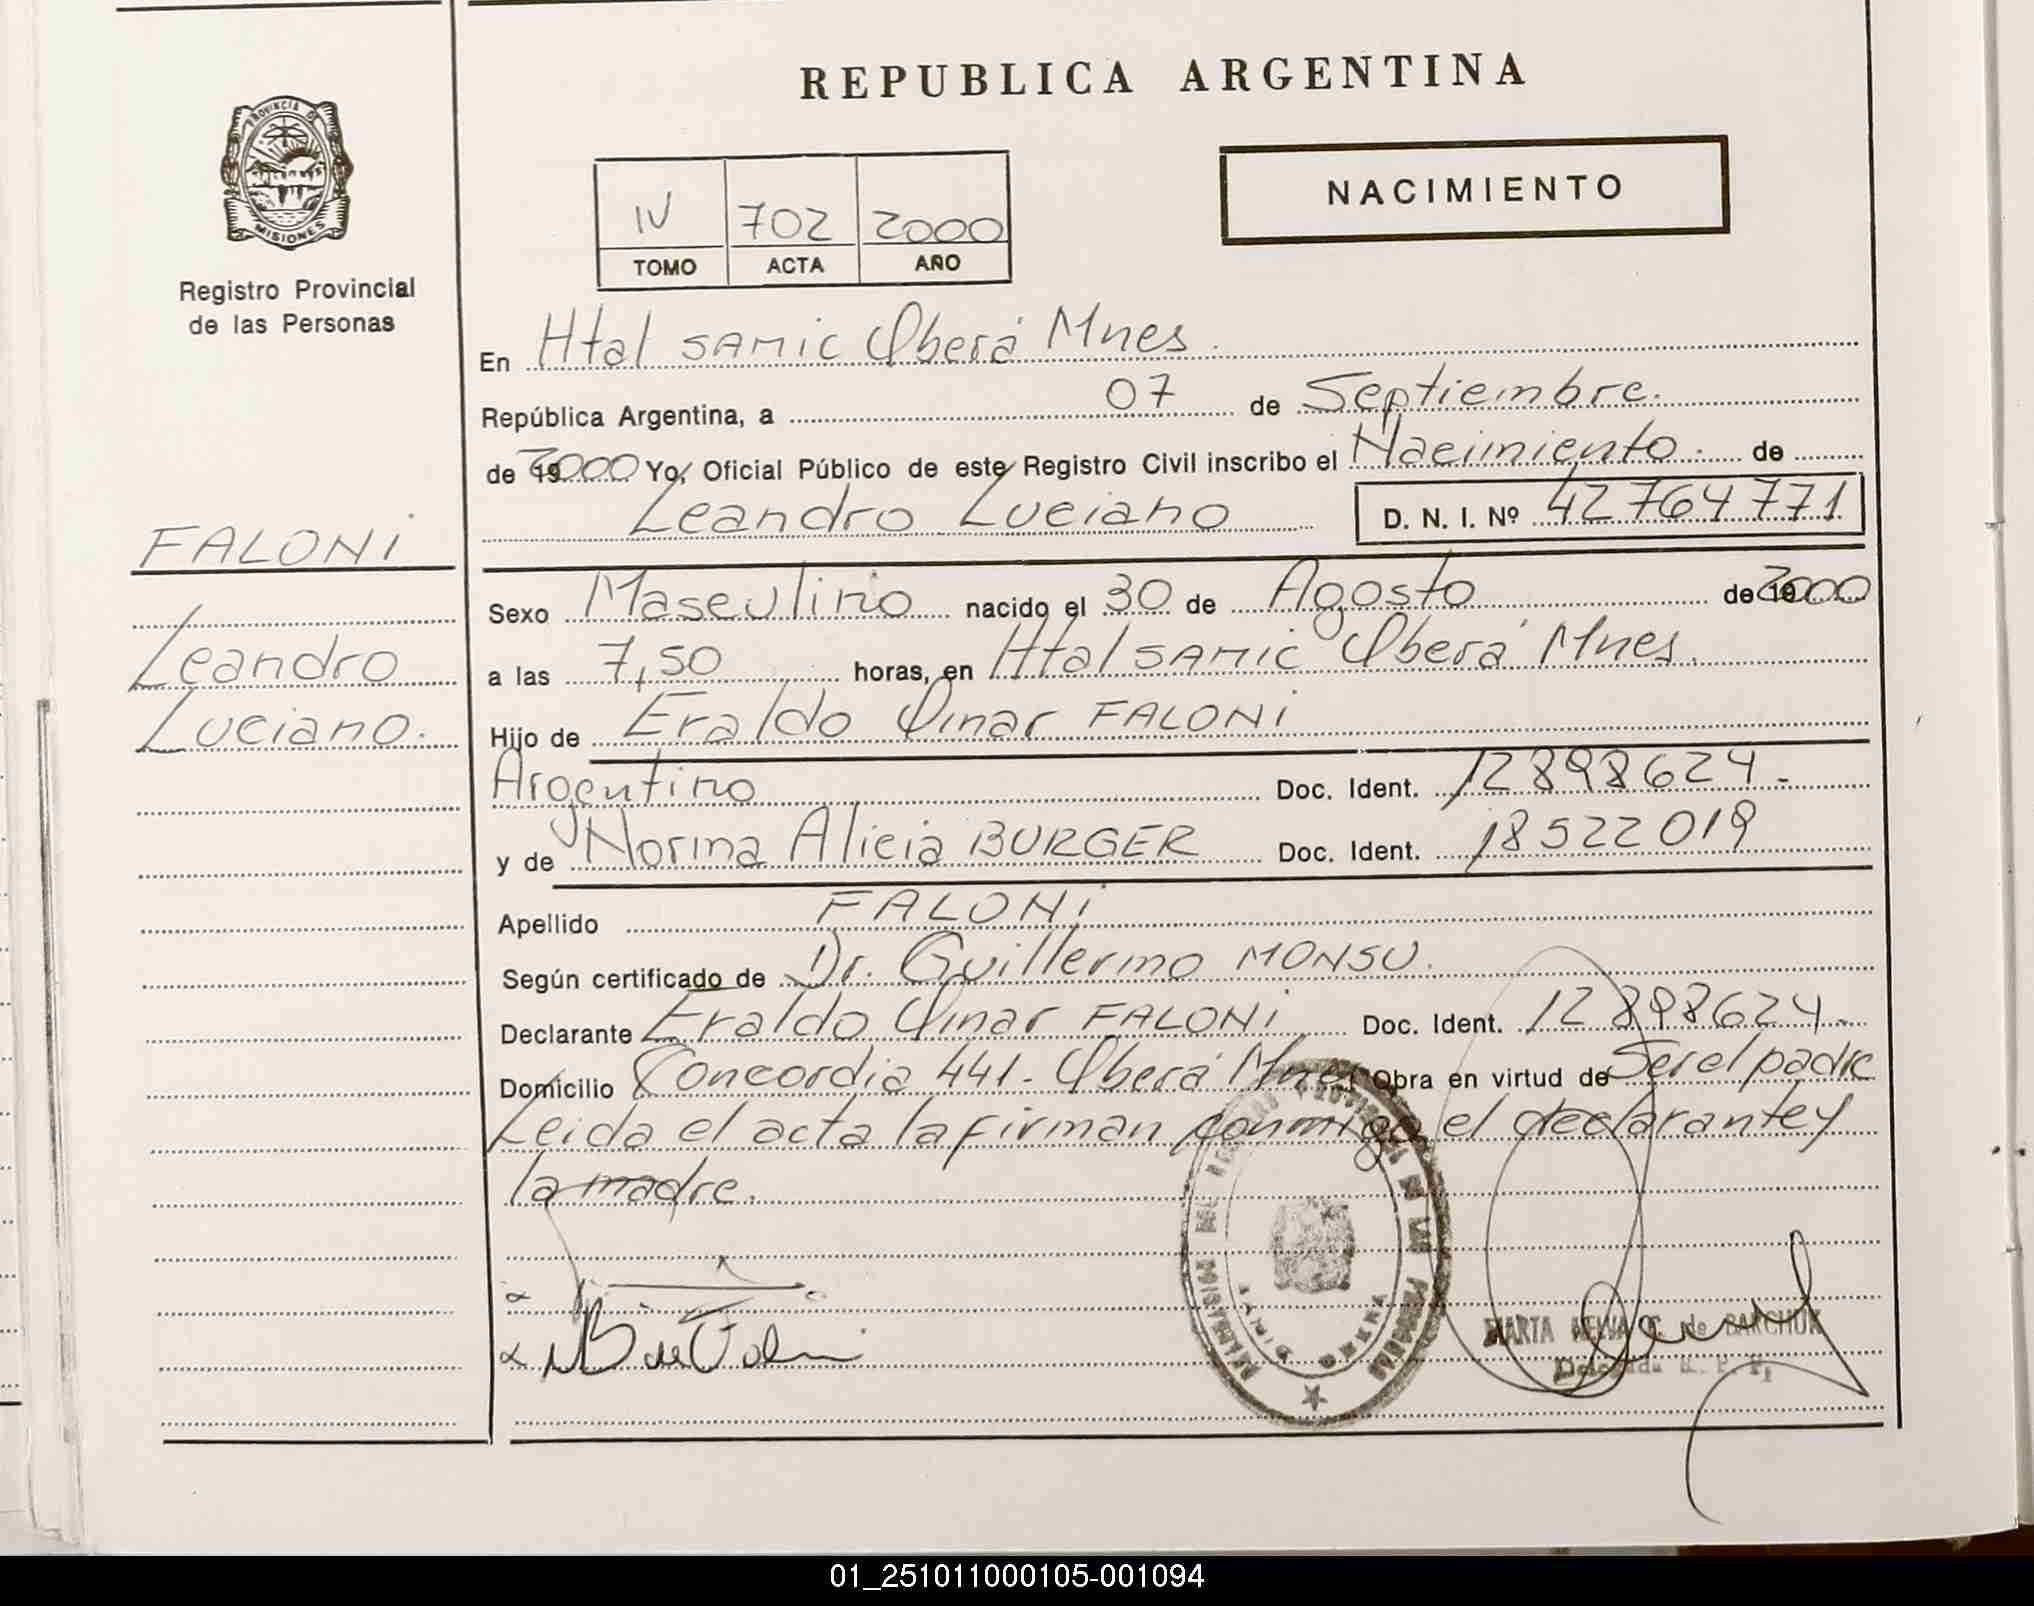 REPUBLICA ARGENTINA
PROVINCIA DE
MISIONES
Registro Provincial
de las Personas
NACIMIENTO
IV 702 2000
TOMO ACTA AÑO
En Htal SAMIC Oberá Mnes.
República Argentina, a 07 de Septiembre.
de 2000 Yo, Oficial Público de este Registro Civil inscribo el Nacimiento. de
Leandro Luciano D. N. I. Nº 42764771
FALONI
Leandro
Luciano.
Sexo Masculino nacido el 30 de Agosto de 2000
a las 7,50 horas, en Htal SAMIC Oberá Mnes.
Hijo de Eraldo Omar FALONI
Argentino Doc. Ident. 12898624.
y de Norma Alicia BURGER Doc. Ident. 18522019
Apellido FALONI
Según certificado de Dr. Guillermo MONSU.
Declarante Eraldo Omar FALONI Doc. Ident. 12898624.
Domicilio Concordia 441. Oberá Mnes Obra en virtud de Ser el padre
Leida el acta la firman conmigo el declarante y
la madre.
MARTA de BARCHUK
Delegada R. P. P.
01_251011000105-001094